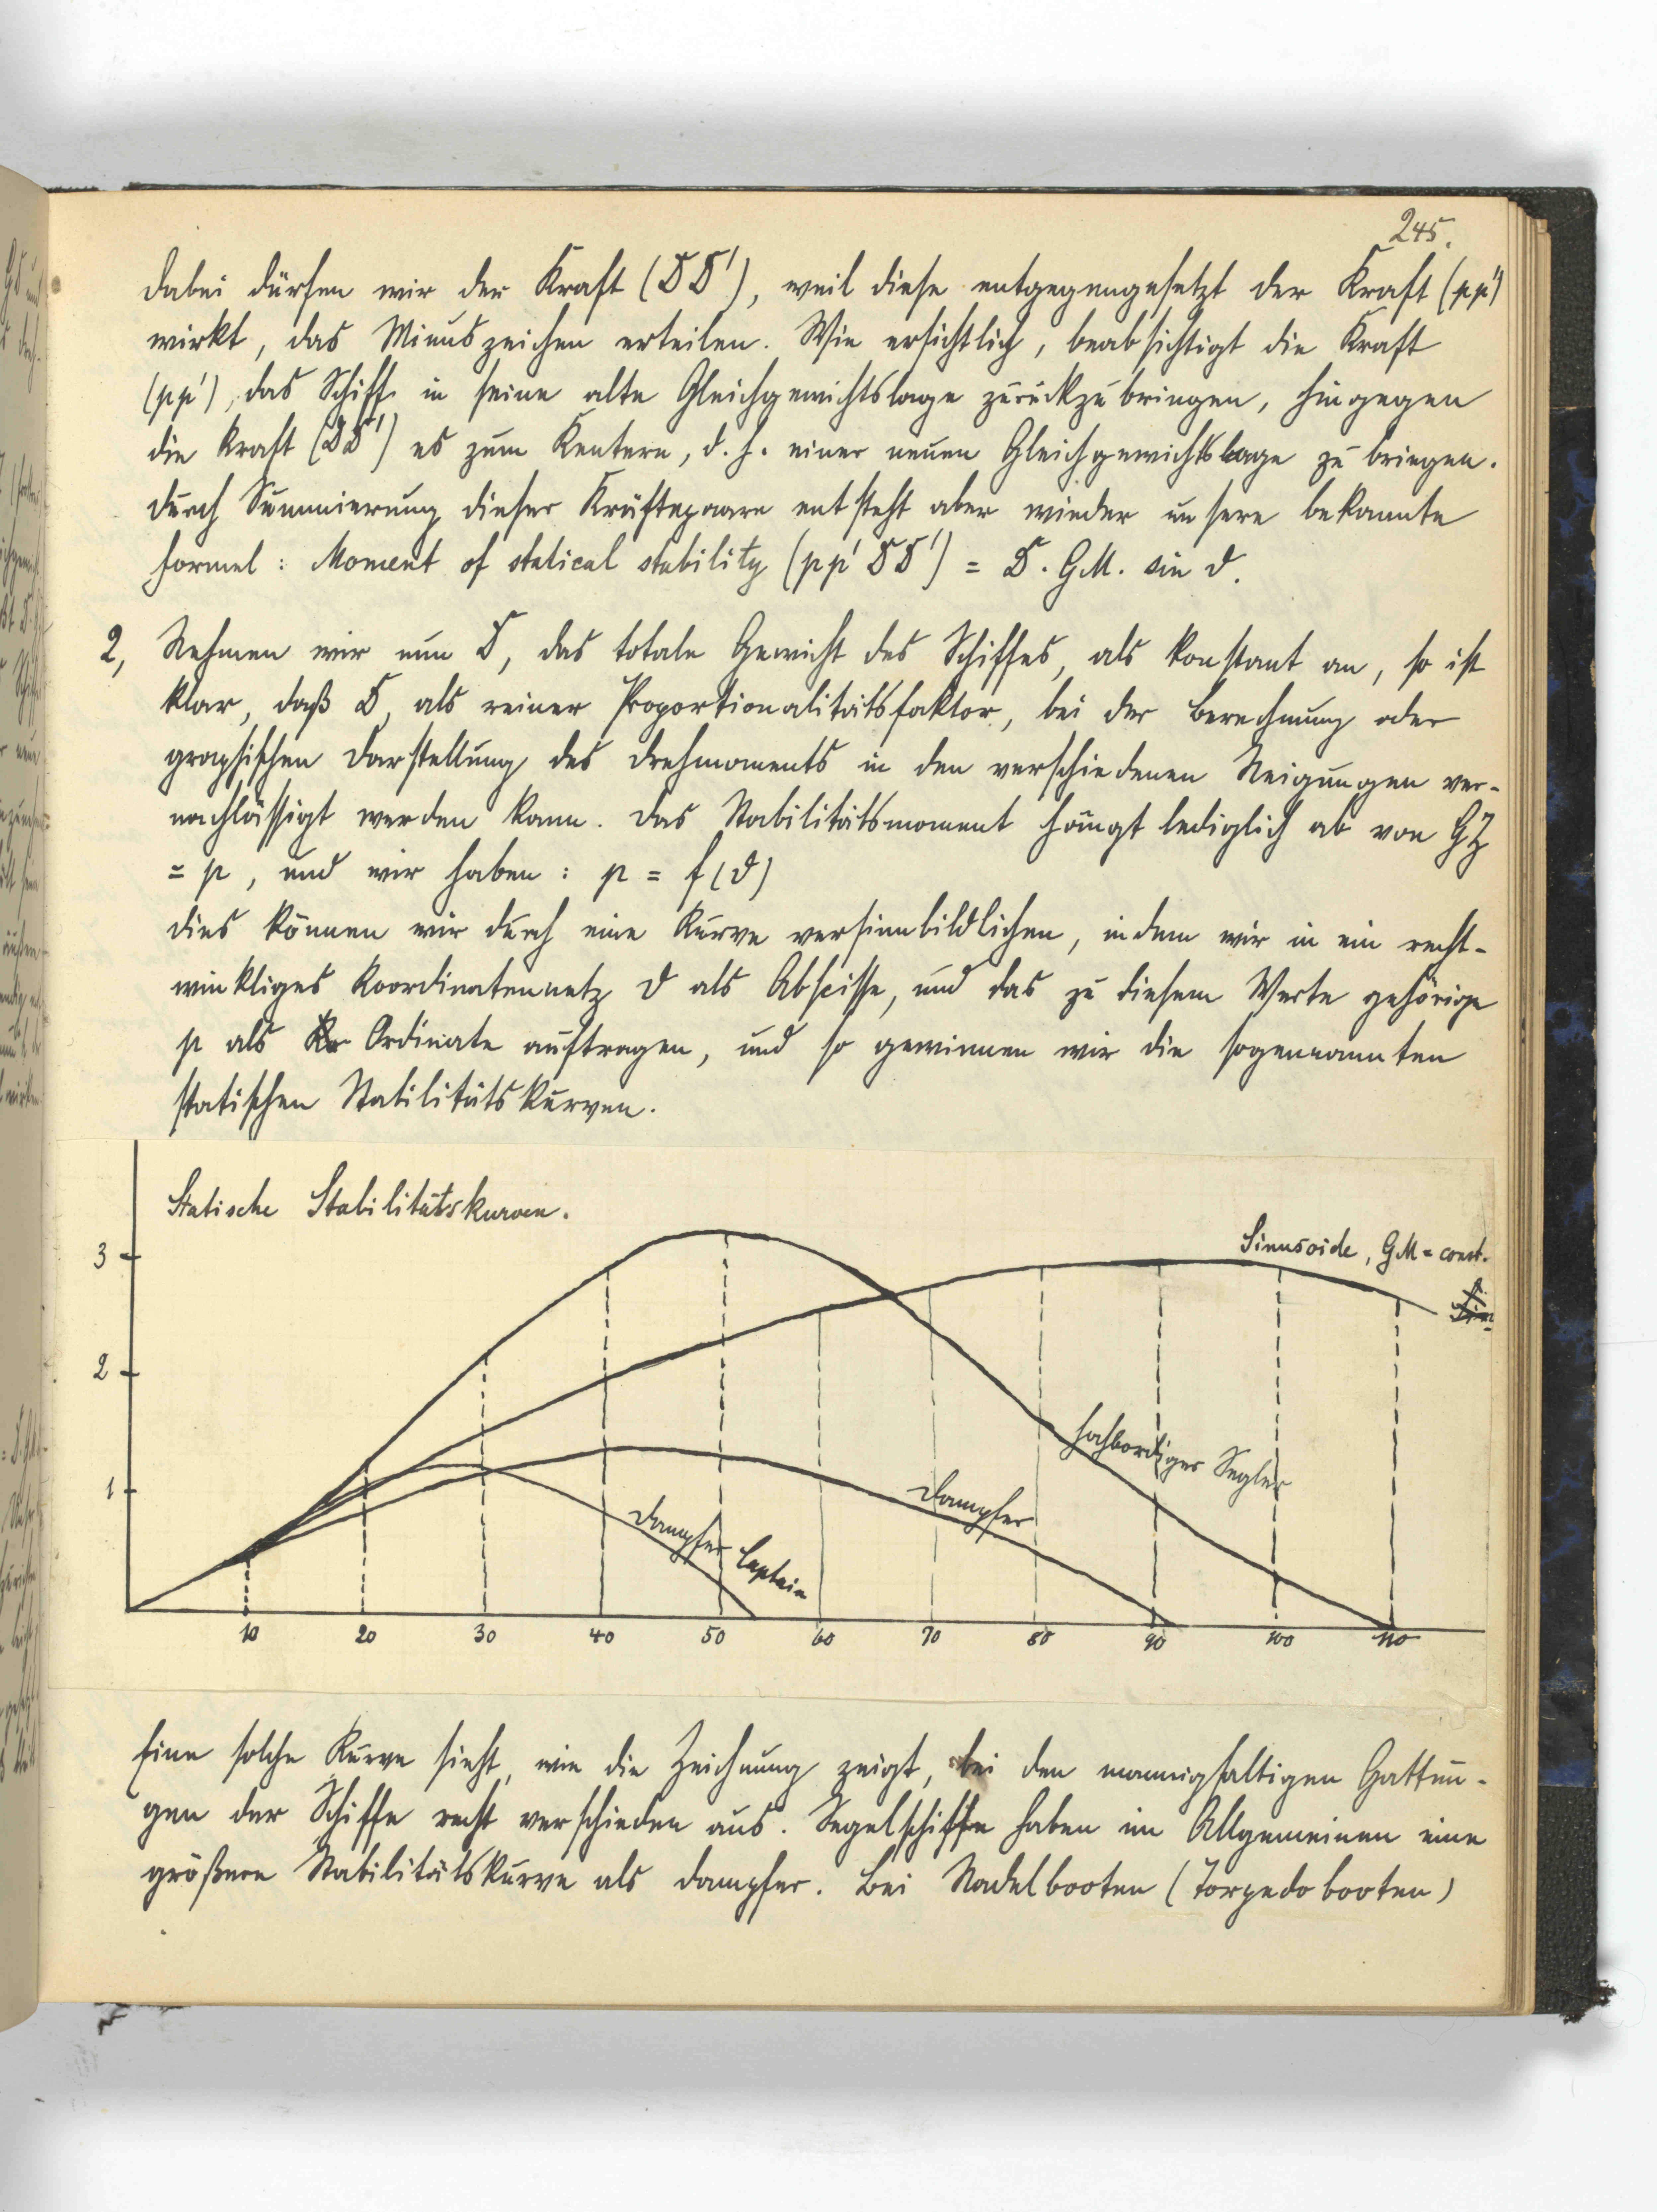 245.
Dabei dürfen wir der Kraft (D D'), weil diese entgegengesetzt der Kraft (pp')
wirkt, das Minuszeichen erteilen. Wie ersichtlich, beabsichtigt die Kraft
(pp'), das Schiff in seine alte Gleichgewichtslage zurückzubringen, hingegen
die Kraft (D D') es zum Kentern, d. h. einer neuen Gleichgewichtslage zu bringen.
Durch Summierung dieser Kräftepaare entsteht aber wieder unsere bekannte
Formel: Moment of statical stability (pp' D D') = D. GM. sin ϑ.
2, Nehmen wir nun D, das totale Gewicht des Schiffes, als konstant an, so ist
klar, daß D, als reiner Proportionalitätsfaktor, bei der Berechnung oder
graphischen Darstellung des Drehmoments in den verschiedenen Neigungen ver-
nachlässigt werden kann. Das Stabilitätsmoment hängt lediglich ab von GZ
= p, und wir haben: p = f(ϑ)
Dies können wir durch eine Kurve versinnbildlichen, indem wir in ein recht-
winkliges Koordinatennetz ϑ als Abscisse, und das zu diesem Werte gehörige
p als Ordinate auftragen, und so gewinnen wir die sogenannten
statischen Stabilitätskurven.
Statische Stabilitätskurven.
Sinusoide, GM = const.
3
2
1
hochbordiger Segler
Dampfer
Dampfer Captain
10 20 30 40 50 60 70 80 90 100 110
Eine solche Kurve sieht, wie die Zeichnung zeigt, bei den mannigfaltigen Gattun-
gen der Schiffe recht verschieden aus. Segelschiffe haben im Allgemeinen eine
größere Stabilitätskurve als Dampfer. Bei Nadelbooten (Torpedobooten)